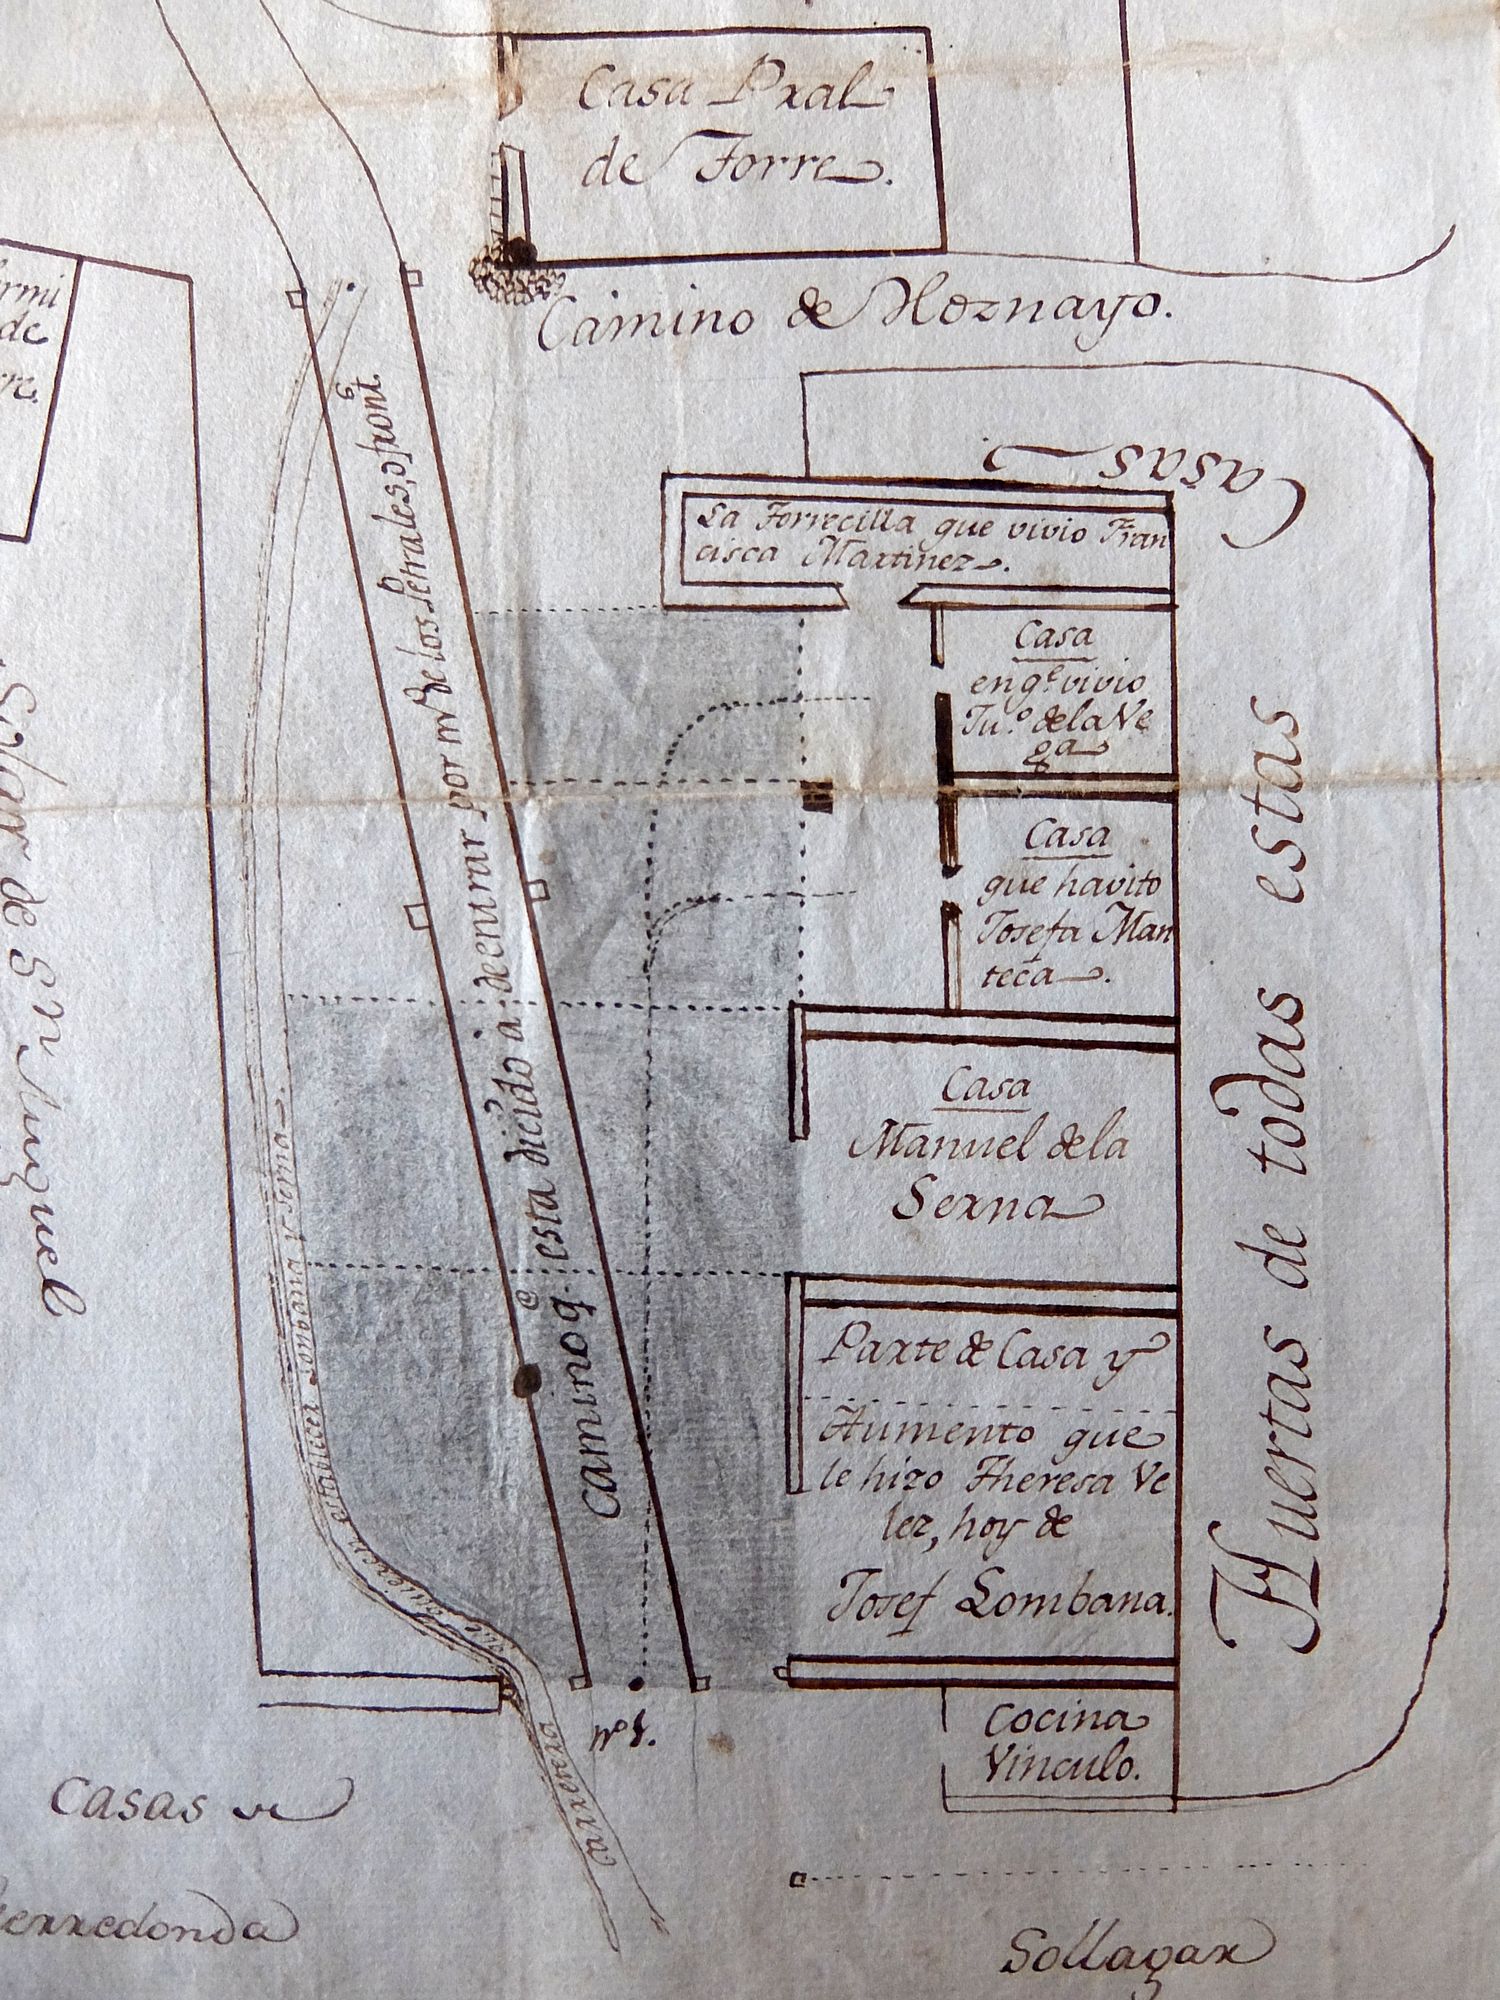 Casa Pral
de Torre.
rmi
de
rre.
Camino de Hoznayo.
Casas
La Torrecilla que vivio Fran
cisca Martinez.
Casa
en q.e vivio
Ju.o de la Ve
ga
Casa
que havito
Josefa Man
teca.
Casa
Manuel de la
Serna
Parte de Casa y
Aumento que
le hizo Theresa Ve
lez, hoy de
Josef Lombana.
Cocina
Vinculo.
Huertas de todas estas
camino q.e esta dicido à de entrar por m.o de los Petrales, o front.s
Carretera que quieren establecer Lombana y Serna.
Solar de Sn Miguel
nº 1.
Casas
erredonda
Sollagar